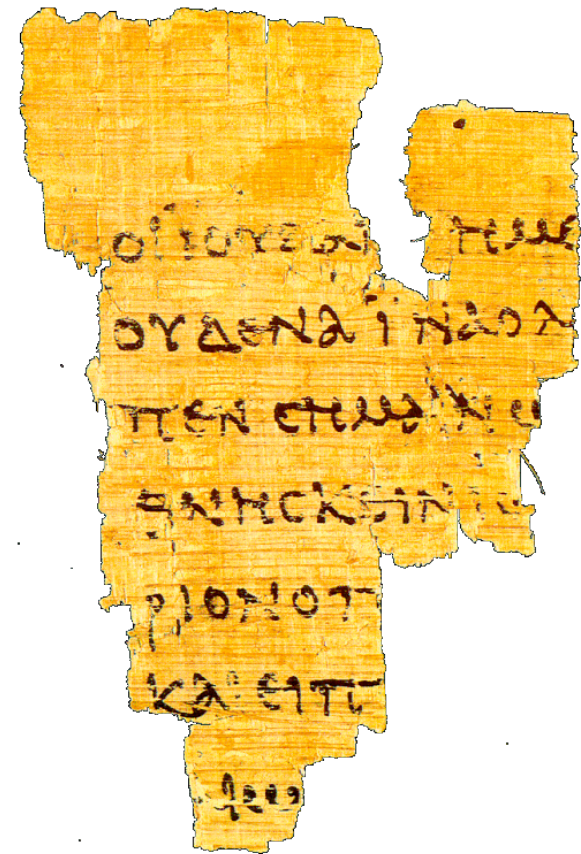 ΟΙ ΙΟΥΔΑΙ ΗΜΕ
ΟΥΔΕΝΑ ΙΝΑ Ο Λ
ΠΕΝ CΗΜΑΙΝΩ
ΘΝΗCΚΕΙΝ ΙC
ΡΙΟΝ Ο Π
ΚΑΙ ΕΙΠ